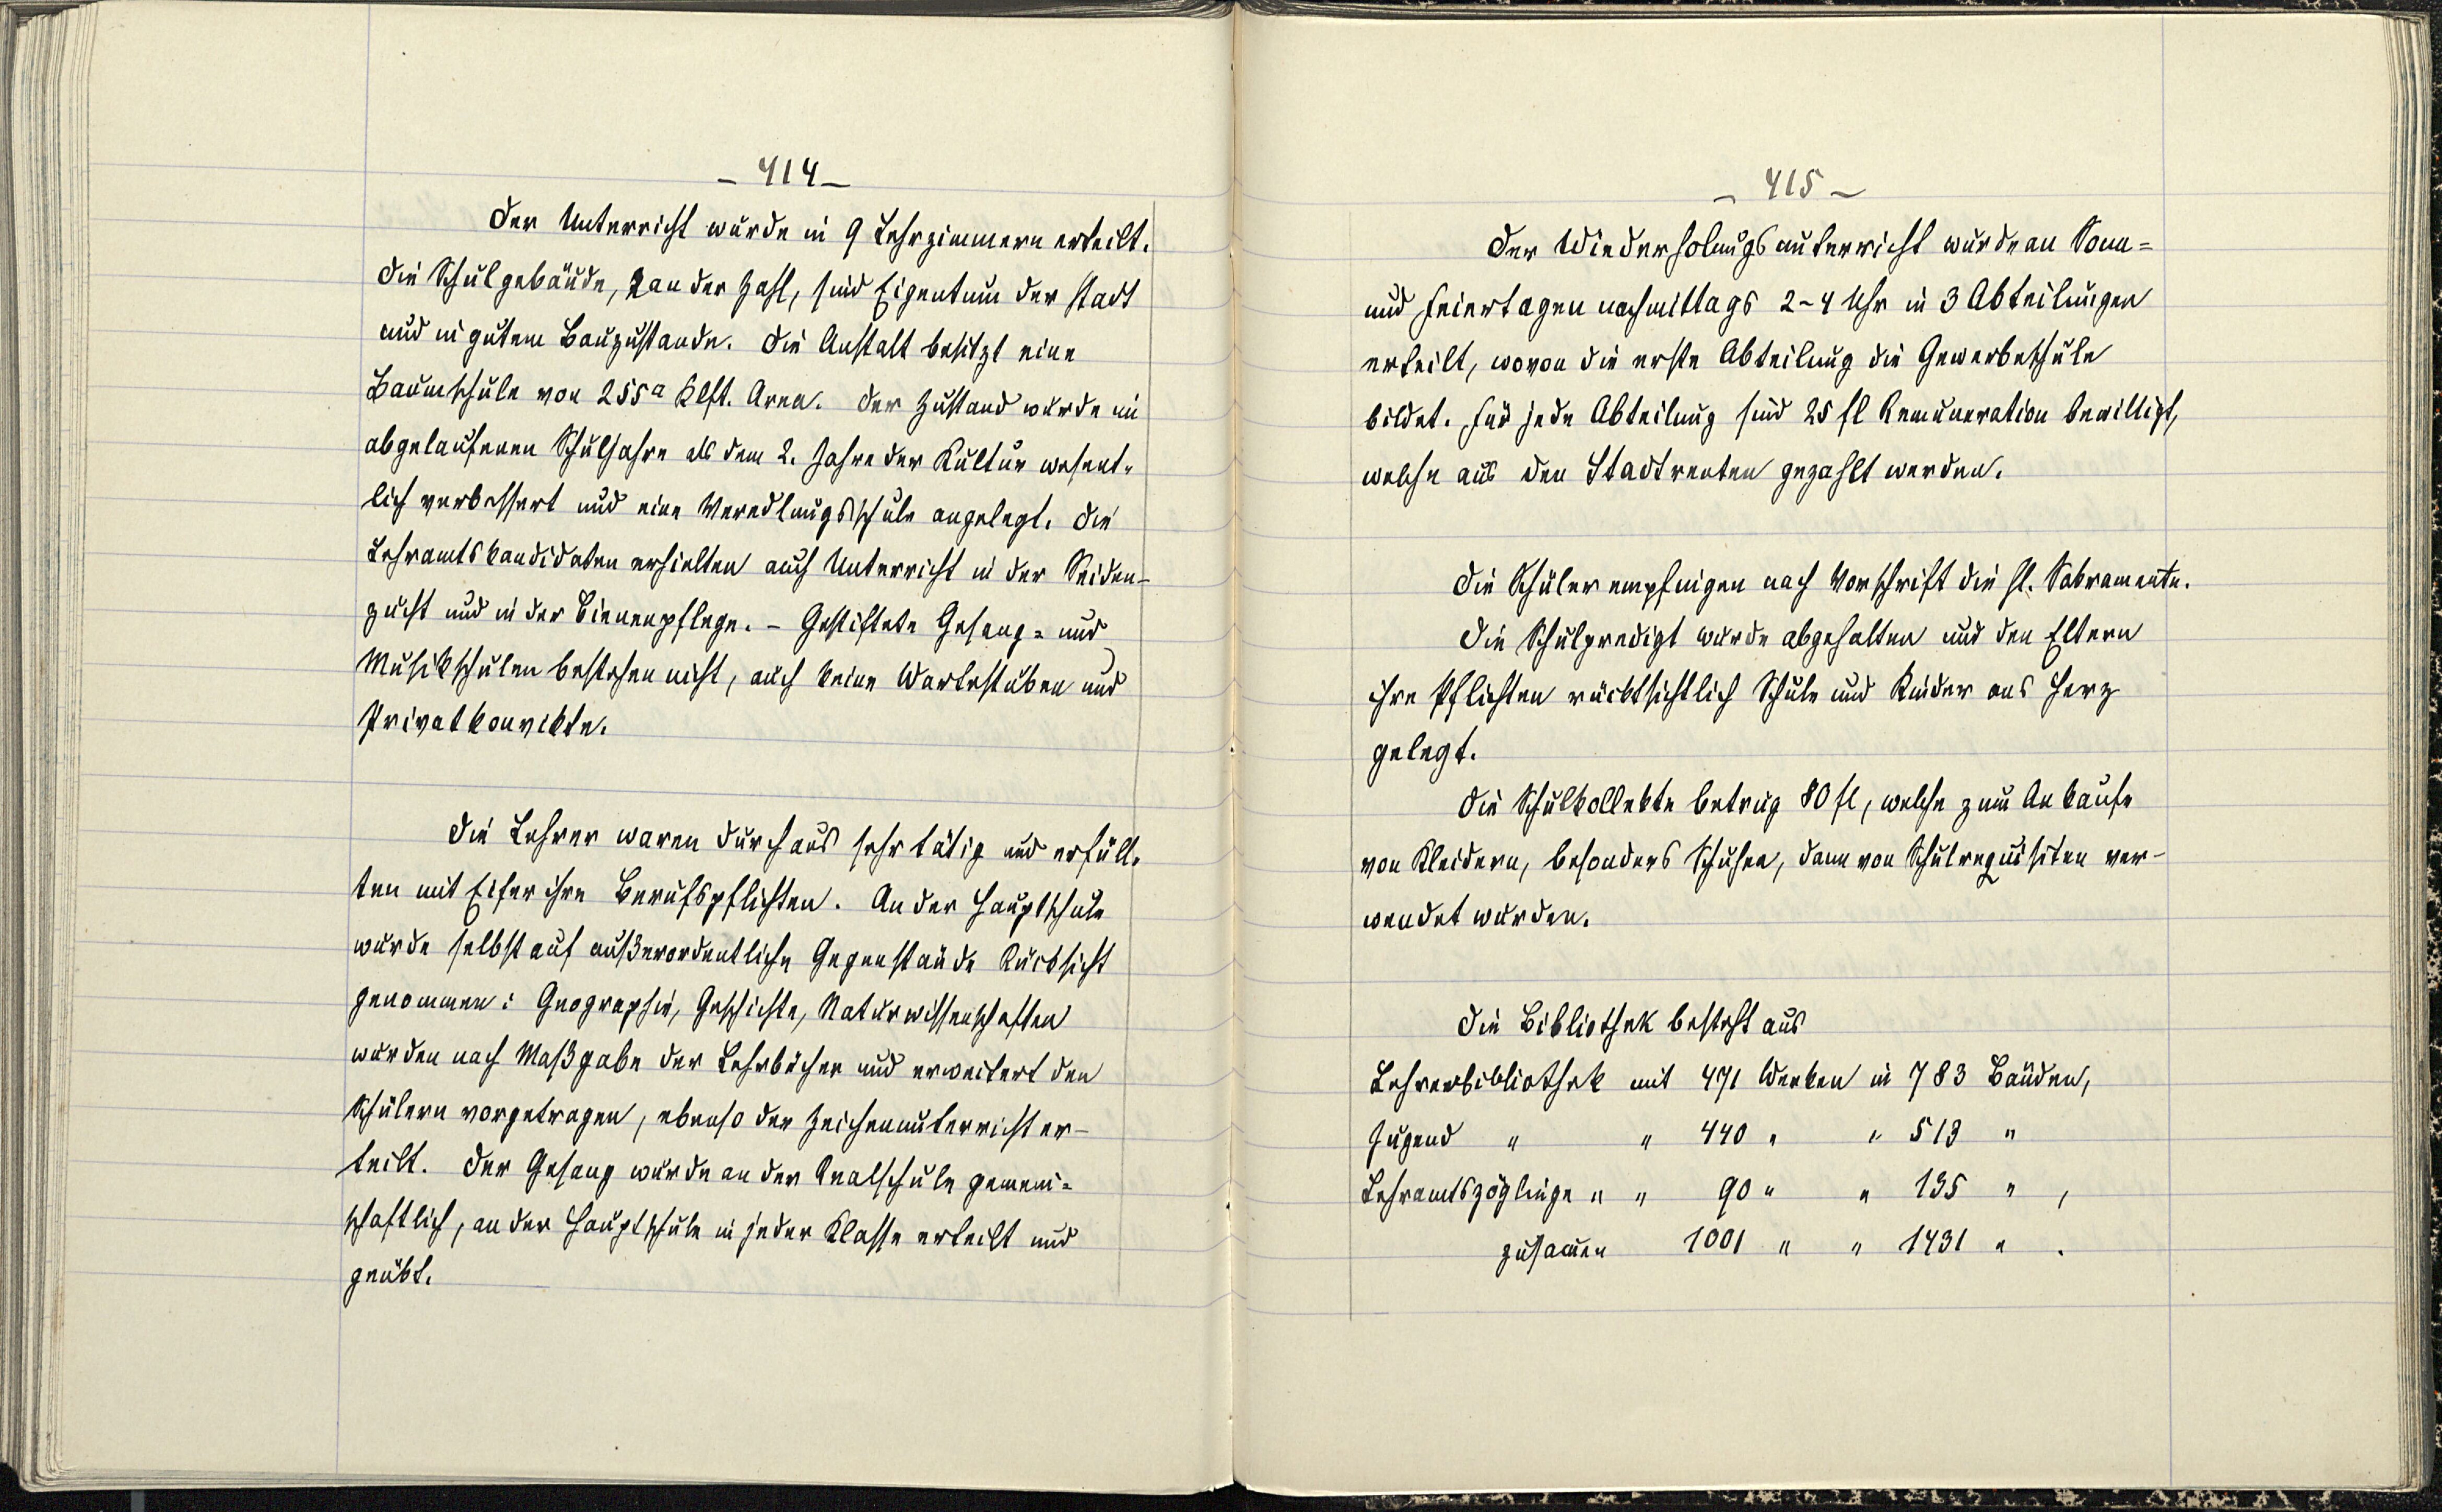 - 414 -
Der Unterricht wurde in 9 Lehrzimmern erteilt.
Die Schulgebäude, 2 an der Zahl, sind Eigentum der Stadt
und in gutem Bauzustande. Die Anstalt besitzt eine
Baumschule von 255 □ Klft. Area. Der Zustand wurde im
abgelaufenen Schuljahre als dem 2. Jahre der Kultur wesent-
lich verbessert und eine Veredlungsschule angelegt. Die
Lehramtskandidaten erhielten auch Unterricht in der Seiden-
zucht und in der Bienenpflege. - Gestiftete Gesang- und
Musikschulen bestehen nicht, auch keine Wartestuben und
Privatkonvikte.
Die Lehrer waren durchaus sehr tätig und erfüll-
ten mit Eifer ihre Berufspflichten. An der Hauptschule
wurde selbst auf außerordentliche Gegenstände Rücksicht
genommen: Geographie, Geschichte, Naturwissenschaften
wurden nach Maßgabe der Lehrbücher und erweitert den
Schülern vorgetragen, ebenso der Zeichenunterricht er-
teilt. Der Gesang wurde an der Realschule gemein-
schaftlich, an der Hauptschule in jeder Klasse erteilt und
geübt.
- 415 -
Der Wiederholungsunterricht wurde an Sonn-
und Feiertagen nachmittags 2-4 Uhr in 3 Abteilungen
erteilt, wovon die erste Abteilung die Gewerbeschule
bildet. Für jede Abteilung sind 25 fl Remuneration bewilligt,
welche aus den Stadtrenten gezahlt werden.
Die Schüler empfingen nach Vorschrift die hl. Sakramente.
Die Schulpredigt wurde abgehalten und den Eltern
ihre Pflichten rücksichtlich Schule und Kinder ans Herz
gelegt.
Die Schulkollekte betrug 80 fl, welche zum Ankaufe
von Kleidern, besonders Schuhen, dann von Schulrequisiten ver-
wendet wurden.
Die Bibliothek besteht aus
Lehrerbibliothek mit 471 Werken in 783 Bänden,
Jugend " " 440 " " 513 "
Lehramtszöglinge " " 90 " " 135 " ,
zusammen 1001 " " 1431 " .